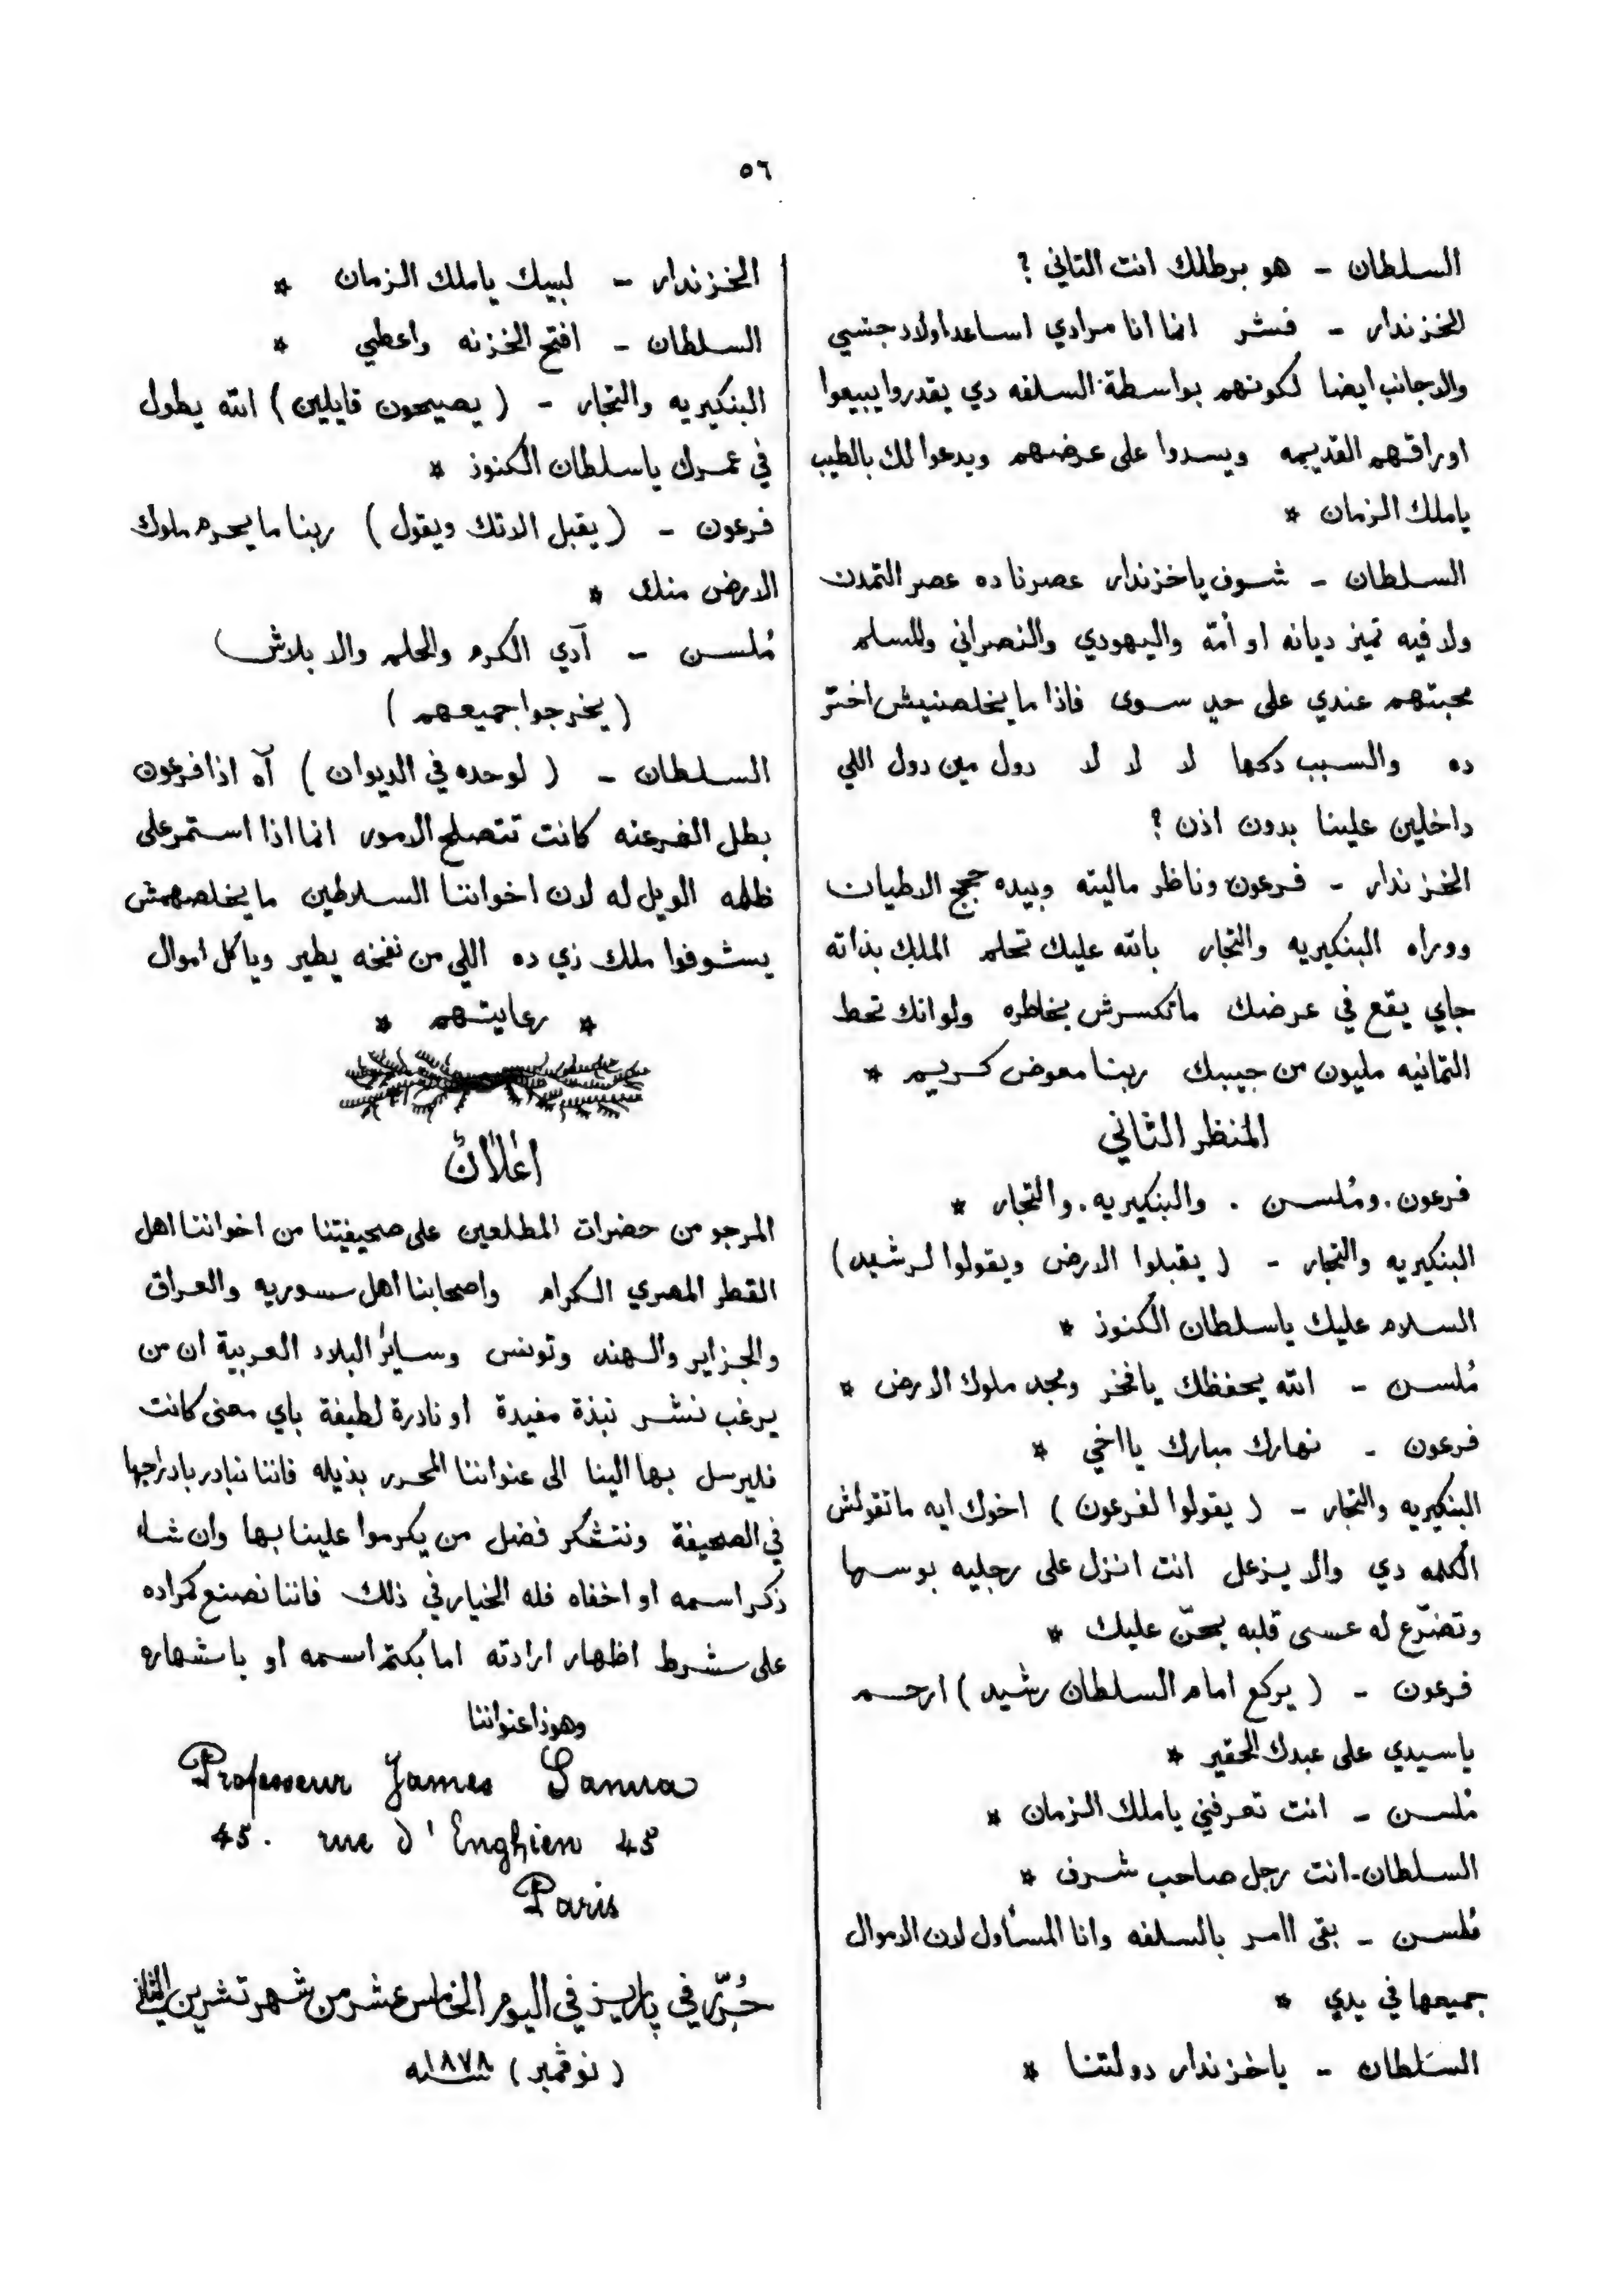 ٥٦
السلطان - هو برطلك انت التاني ؟
الخزندار - فشر انما انا مرادي اساعد اولاد جنسي
والاجانب ايضا لكونهم بواسطة السلفه دي يقدروا يبيعوا
اوراقهم القديمه ويسدوا على عرضهم ويدعوا لك بالطيب
ياملك الزمان *
السلطان - شوف ياخزندار عصرنا ده عصر التمدن
ولا فيه تميز ديانه او أمّه واليهودي والنصراني والمسلم
محبتهم عندي على حدٍ سوى فاذا ما يخلصنيش اختر
ده والسبب دكها لا لا لا دول مين دول اللي
داخلين علينا بدون اذن ؟
الخزندار - فرعون وناظر ماليته وبيده حجج الاطيان
ووراه البنكيريه والتجار بالله عليك تحلم الملك بذاته
جاي يقع في عرضك ماتكسرش بخاطره ولو انك تحط
التمانيه مليون من جيبك ربنا معوض كريم *
المنظر الثاني
فرعون . ومُلسن . والبنكيريه . والتجار *
البنكيريه والتجار - ( يقبلوا الارض ويقولوا لرشيد )
السلام عليك ياسلطان الكنوز *
مُلسن - الله يحفظك يافخر ومجد ملوك الارض *
فرعون - نهارك مبارك يا اخي *
البنكيريه والتجار - ( يقولوا لفرعون ) اخوك ايه ماتقولش
الكلمه دي والا يزعل انت انزل على رجليه بوسها
وتضرّع له عسى قلبه يحنّ عليك *
فرعون - ( يركع امام السلطان رشيد ) ارحم
ياسيدي على عبدك الحقير *
مُلسن - انت تعرفني ياملك الزمان *
السلطان - انت رجل صاحب شرف *
مُلسن - بقى اامر بالسلفه وانا المسأول لان الاموال
جميعها في يدي *
السلطان - ياخزندار دولتنا *
الخزندار - لبيك ياملك الزمان *
السلطان - افتح الخزنه واعطي *
البنكيريه والتجار - ( يصيحون قايلين ) الله يطول
في عمرك ياسلطان الكنوز *
فرعون - ( يقبل الاتك ويقول ) ربنا مايحرم ملوك
الارض منك *
مُلسن - آدي الكرم والحلم والا بلاش
( يخرجوا جميعهم )
السلطان - ( لوحده في الديوان ) آه اذا فرعون
بطل الفرعنه كانت تتصلح الامور انما اذا استمر على
ظلمه الويل له لان اخواننا السلاطين ما يخلصهمش
يشوفوا ملك زي ده اللي من نفخه يطير وياكل اموال
* رعايتهم *
اعلان
المرجو من حضرات المطلعين على صحيفيتنا من اخواننا اهل
القطر المصري الكرام واصحابنا اهل سوريه والعراق
والجزاير والهند وتونس وسائر البلاد العربية ان من
يرغب نشر نبذة مفيدة او نادرة لطيفة باي معنى كانت
فليرسل بها الينا الى عنواننا المحرر بذيله فاننا نبادر بادراجها
في الصحيفة ونتشكر فضل من يكرموا علينا بها وان شاء
ذكر اسمه او اخفاه فله الخيار في ذلك فاننا نصنع كمراده
على شرط اظهار ارادته اما بكتم اسمه او باشهاره
وهوذا عنواننا
Professeur James Sanua
45. rue d'Enghien 45
Paris
حُرّر في پاريز في اليوم الخامس عشر من شهر تشرين الثاني
( نوڤمبر ) سنة ١٨٧٨